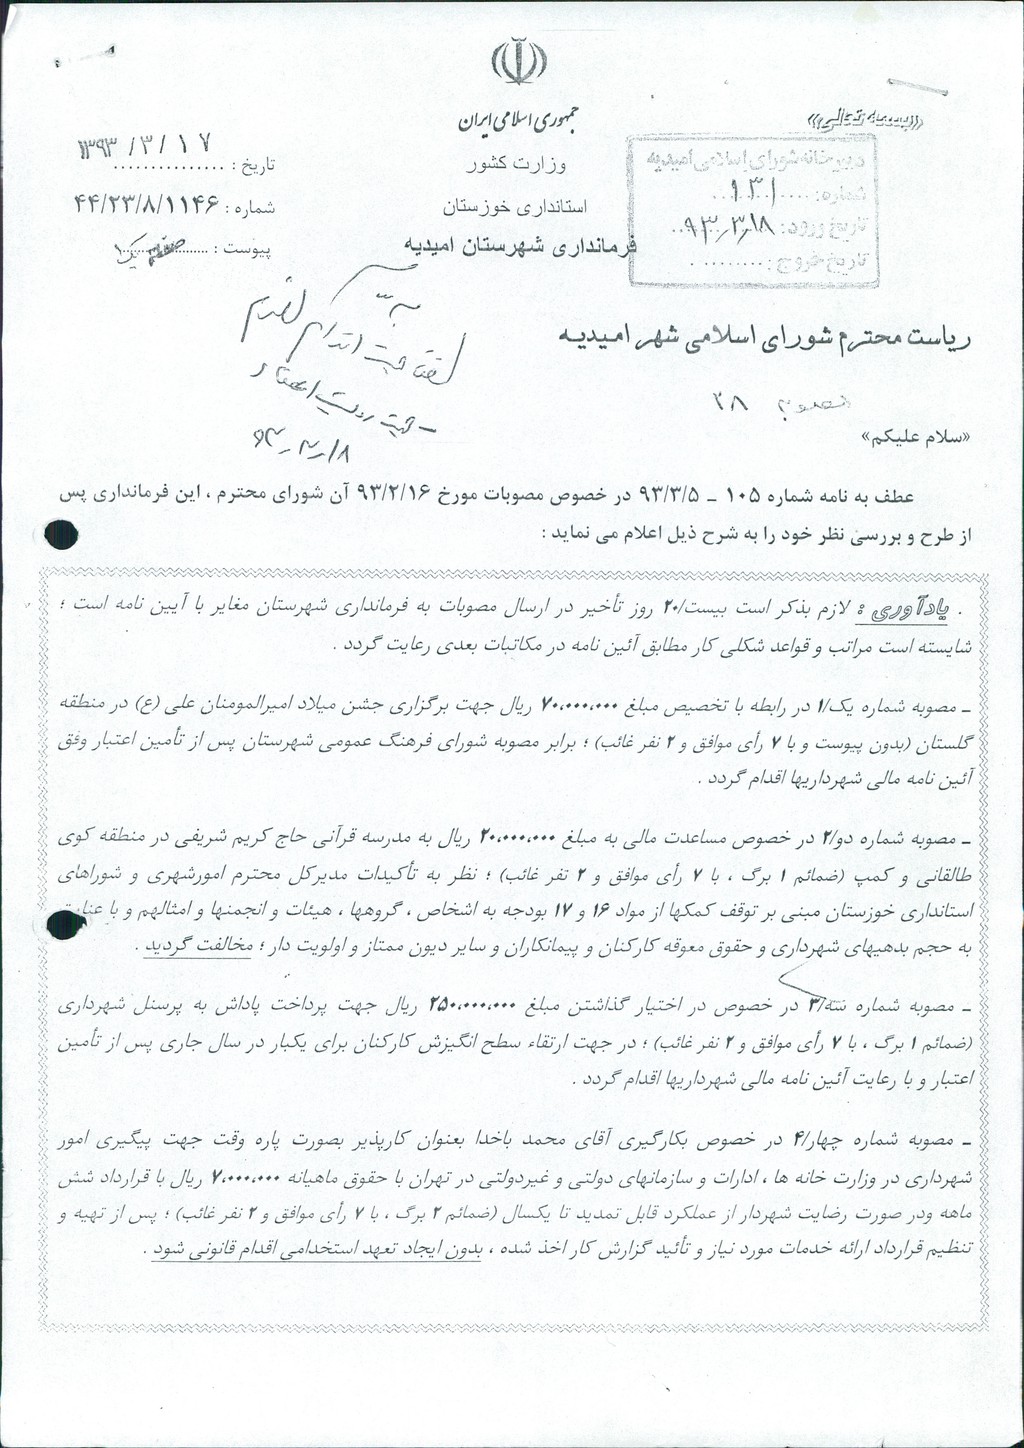 «بسمه تعالی»
جمهوری اسلامی ایران
وزارت کشور
استانداری خوزستان
فرمانداری شهرستان امیدیه
تاریخ : ۱۳۹۳ /۳ / ۱۷
شماره : ۴۴/۲۳/۸/۱۱۴۶
پیوست :
دبیرخانه شورای اسلامی امیدیه
شماره: ۱۳۱
تاریخ ورود: ۹۳٫۳٫۱۸
تاریخ خروج:
ریاست محترم شورای اسلامی شهر امیدیه
«سلام علیکم»
عطف به نامه شماره ۱۰۵ – ۹۳/۳/۵ در خصوص مصوبات مورخ ۹۳/۲/۱۶ آن شورای محترم ، این فرمانداری پس
از طرح و بررسی نظر خود را به شرح ذیل اعلام می نماید :
. یادآوری : لازم بذکر است بیست/۲۰ روز تأخیر در ارسال مصوبات به فرمانداری شهرستان مغایر با آیین نامه است ؛
شایسته است مراتب و قواعد شکلی کار مطابق آئین نامه در مکاتبات بعدی رعایت گردد .
– مصوبه شماره یک/۱ در رابطه با تخصیص مبلغ ۷۰،۰۰۰،۰۰۰ ریال جهت برگزاری جشن میلاد امیرالمومنان علی (ع) در منطقه
گلستان (بدون پیوست و با ۷ رأی موافق و ۲ نفر غائب) ؛ برابر مصوبه شورای فرهنگ عمومی شهرستان پس از تأمین اعتبار وفق
آئین نامه مالی شهرداریها اقدام گردد .
– مصوبه شماره دو/۲ در خصوص مساعدت مالی به مبلغ ۲۰،۰۰۰،۰۰۰ ریال به مدرسه قرآنی حاج کریم شریفی در منطقه کوی
طالقانی و کمپ (ضمائم ۱ برگ ، با ۷ رأی موافق و ۲ نفر غائب) ؛ نظر به تأکیدات مدیرکل محترم امورشهری و شوراهای
استانداری خوزستان مبنی بر توقف کمکها از مواد ۱۶ و ۱۷ بودجه به اشخاص ، گروهها ، هیئات و انجمنها و امثالهم و با عنایت
به حجم بدهیهای شهرداری و حقوق معوقه کارکنان و پیمانکاران و سایر دیون ممتاز و اولویت دار ؛ مخالفت گردید .
– مصوبه شماره سه/۳ در خصوص در اختیار گذاشتن مبلغ ۲۵۰،۰۰۰،۰۰۰ ریال جهت پرداخت پاداش به پرسنل شهرداری
(ضمائم ۱ برگ ، با ۷ رأی موافق و ۲ نفر غائب) ؛ در جهت ارتقاء سطح انگیزش کارکنان برای یکبار در سال جاری پس از تأمین
اعتبار و با رعایت آئین نامه مالی شهرداریها اقدام گردد .
– مصوبه شماره چهار/۴ در خصوص بکارگیری آقای محمد باخدا بعنوان کارپذیر بصورت پاره وقت جهت پیگیری امور
شهرداری در وزارت خانه ها ، ادارات و سازمانهای دولتی و غیردولتی در تهران با حقوق ماهیانه ۷،۰۰۰،۰۰۰ ریال با قرارداد شش
ماهه ودر صورت رضایت شهردار از عملکرد قابل تمدید تا یکسال (ضمائم ۲ برگ ، با ۷ رأی موافق و ۲ نفر غائب) ؛ پس از تهیه و
تنظیم قرارداد ارائه خدمات مورد نیاز و تأئید گزارش کار اخذ شده ، بدون ایجاد تعهد استخدامی اقدام قانونی شود .